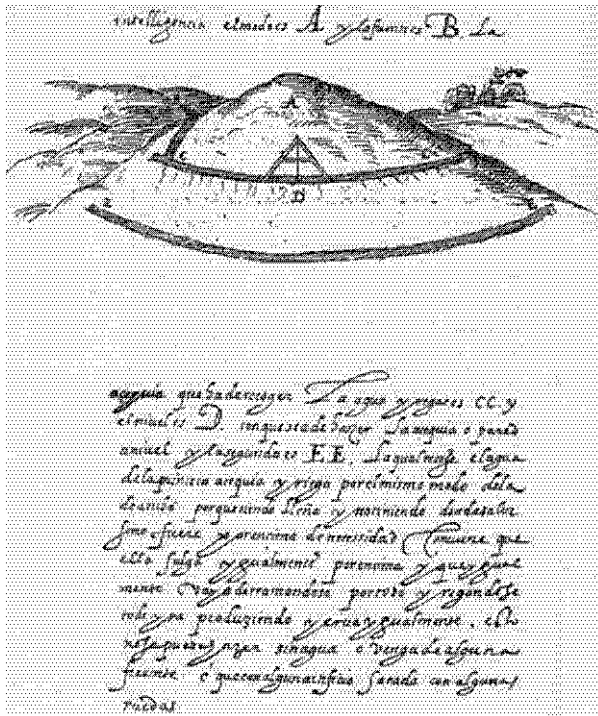 intelligencia elmodo es A y la fuente es B. La
A
C C
D
E E
acequia que ha de recoger La agua y regar es CC. y
el nivel es D. conque se ha de hazer La acequia o pared
a nivel y la segunda es E E. La qual mente el agua
de la primera acequia y riega por el mismo modo de la
de arriba porque siendo llena y no teniendo donde salir
fuere por encima de necessidad Conviene que
ella salga ygualmente por encima y que ygual
mente vaya derramandose por todo y regandose
todo y va produziendo yerva ygualmente.
sin agua o venga de alguna
fuente o que con algun artificio sacada con algunas
ruedas